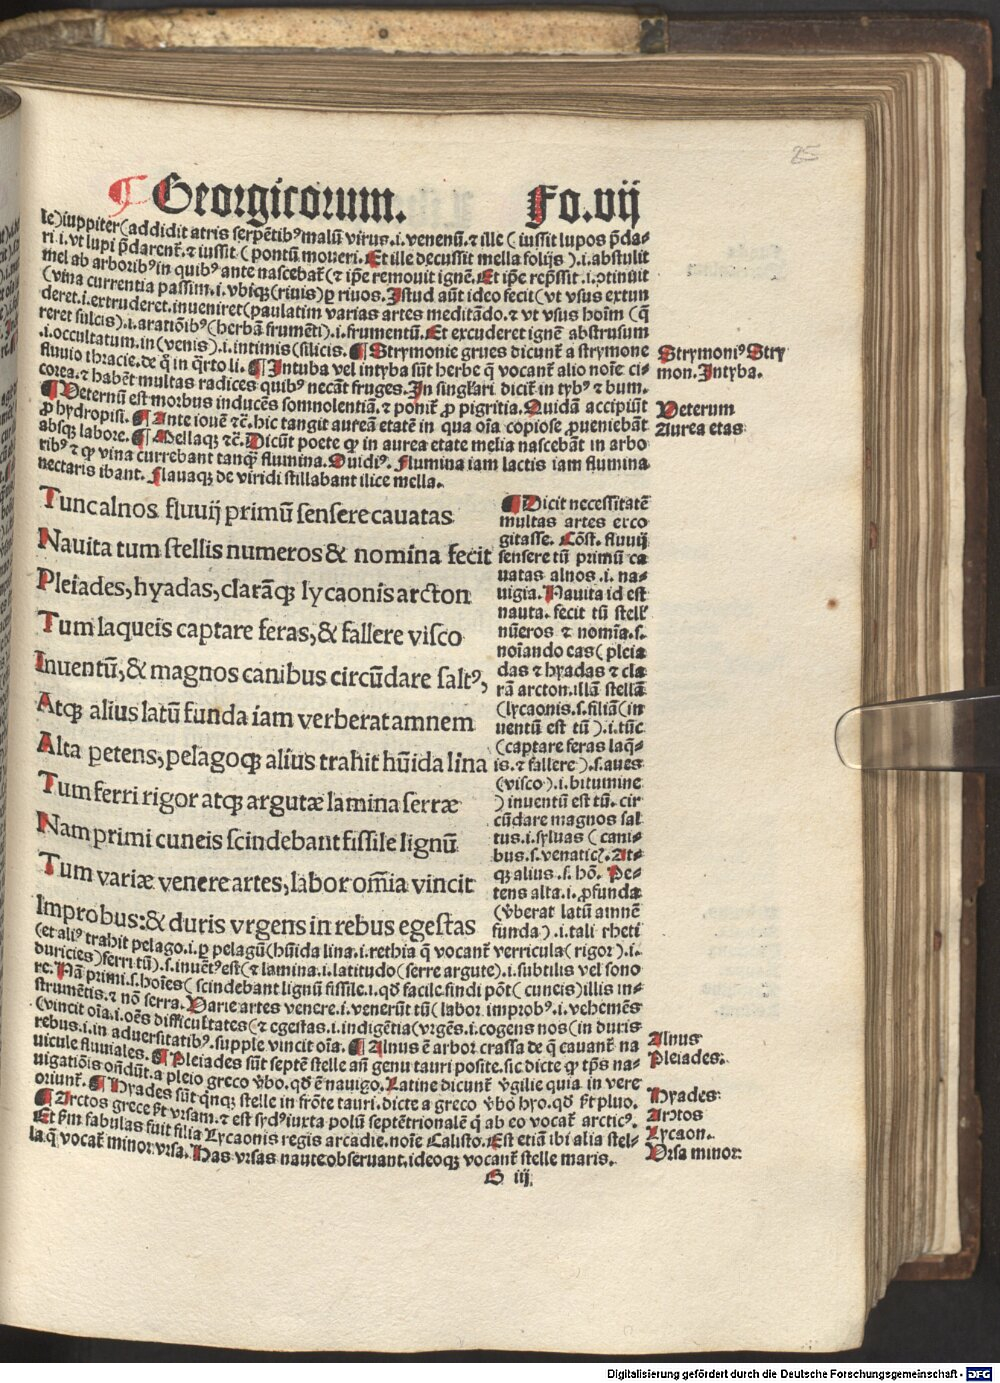 25
¶ Georgicorum. Fo.vij
le)iuppiter(addidit atris serpētibꝰ malū virus.i.venenū.⁊ ille ( iussit lupos p̄da⸗
ri.i.vt lupi p̄darent᷑.⁊ iussit ( pontū moueri. Et ille decussit mella folijs ).i.abstulit
mel ab arboribꝰ in quibꝰ ante nascebat᷑ (⁊ ip̄e remouit ignē. Et ip̄e rep̄ssit .i.ↄtinuit
(vina currentia passim.i.vbiqꝫ (riuis) ꝑ riuos. Istud aūt ideo fecit ( vt vsus extun
deret.i.extruderet.inueniret (paulatim varias artes meditādo.⁊ vt vsus hoīm (q̄
reret sulcis).i.aratiōibꝰ (herbā frumēti).i.frumentū. Et excuderet ignē abstrusum
.i.occultatum.in (venis).i.intimis (silicis. ¶ Strymonie grues dicunt᷑ a strymone
fluuio thracie.de q̄ in q̄rto li. ¶ Intuba vel intyba sūt herbe q̄ vocant᷑ alio noīe ci⸗
corea.⁊ habēt multas radices quibꝰ necāt fruges. In singl̄ari dicit᷑ in tybꝰ ⁊ bum.
¶ Veternū est morbus inducēs somnolentiā.⁊ ponit᷑ ꝓ pigritia. Quidā accipiūt
ꝓ hydropisi. ¶ Ante iouē ⁊c̄. hic tangit aureā etatē in qua oīa copiose ꝓueniebāt
absqꝫ labore. ¶ Mellaqꝫ ⁊c̄. Dicūt poete ꝙ in aurea etate melia nascebāt in arbo
ribꝰ ⁊ ꝙ vina currebant tanqꝫ flumina. Ouidiꝰ. Flumina iam lactis iam flumina
nectaris ibant. Flauaqꝫ de viridi stillabant ilice mella.
Strymoniꝰ Stry
mon. Intyba.
Veterum
Aurea etas
Tuncalnos fluuij primū sensere cauatas
Nauita tum stellis numeros & nomina fecit
Pleiades, hyadas, clarāqꝫ lycaonis arcton
Tum laqueis captare feras, & fallere visco
Inuentū, & magnos canibus circūdare saltꝰ,
Atqꝫ alius latū funda iam verberat amnem
Alta petens, pelagoqꝫ alius trahit hūida lina
Tum ferri rigor atqꝫ argutæ lamina serræ
Nam primi cuneis scindebant fissile lignū
Tum variæ venere artes, labor om̄ia vincit
Improbus: & duris vrgens in rebus egestas
¶ Dicit necessitatē
multas artes erco
gitasse. Cōst. fluuij
sensere tū primū ca
uatas alnos .i. na⸗
uigia. Nauita id est
nauta. fecit tū stell᷑
nūeros ⁊ nomīa.s.
noīando eas ( pleia
das ⁊ hyadas ⁊ cla
rā arcton.illā stellā
(lycaonis.s.filiā(in
uentū est tū ).i.tūc
(captare feras laq̄⸗
is.⁊ fallere ).s.aues
(visco).i.bitumine
) inuentū est tū. cir
cūdare magnos sal
tus.i.syluas ( cani⸗
bus.s.venaticꝭ. At⸗
qꝫ alius .s. hō. Pe⸗
tens alta.i.ꝓfunda
(v̄berat latū amnē
funda).i.tali rheti
(et aliꝰ trahit pelago.i.ꝑ pelagū (hūida lina.i.rethia q̄ vocant᷑ verricula (rigor).i.
duricies) ferri tū).s.inuētꝰ est (⁊ lamina.i.latitudo (serre argute).i.subtilis vel sono
re. Nā primi.s.hoīes ( scindebant lignū fissile.i.qď facile findi pōt ( cuneis) illis in⸗
strumētis.⁊ nō serra. Varie artes venere.i.venerūt tū ( labor improbꝰ.i.vehemēs
(vincit oīa.i.oēs difficultates (⁊ egestas.i.indigētia (vrgēs.i.cogens nos (in duris
rebus.i.in aduersitatibꝰ.supple vincit oīa. ¶ Alnus ē arbor crassa de q̄ cauant᷑ na
uicule fluuiales. ¶ Pleiades sūt septē stelle an̄ genu tauri posite.sic dicte ꝙ tp̄s na⸗
uigatiōis on̄dūt.a pleio greco v̄bo.qď ē nauigo. Latine dicunt᷑ v̄gilie quia in vere
oriunt᷑. ¶ Hyades sūt qnqꝫ stelle in frōte tauri.dicte a greco v̄bo hyo.qď ē᷑t pluo.
¶ Arctos grece ē᷑t vrsam.⁊ est sydꝰ iuxta polū septētrionalē q̄ ab eo vocat᷑ arcticꝰ.
Et ẜm fabulas fuit filia Lycaonis regis arcadie.noīe Calisto. Est etiā ibi alia stel⸗
la.q̄ vocat᷑ minor vrsa. Has vrsas naute obseruant.ideoqꝫ vocant᷑ stelle maris.
Alnus
Pleiades.
Hyades.
Arctos
Lycaon.
Vrsa minor.
G iij
Digitalisierung gefördert durch die Deutsche Forschungsgemeinschaft - DFG